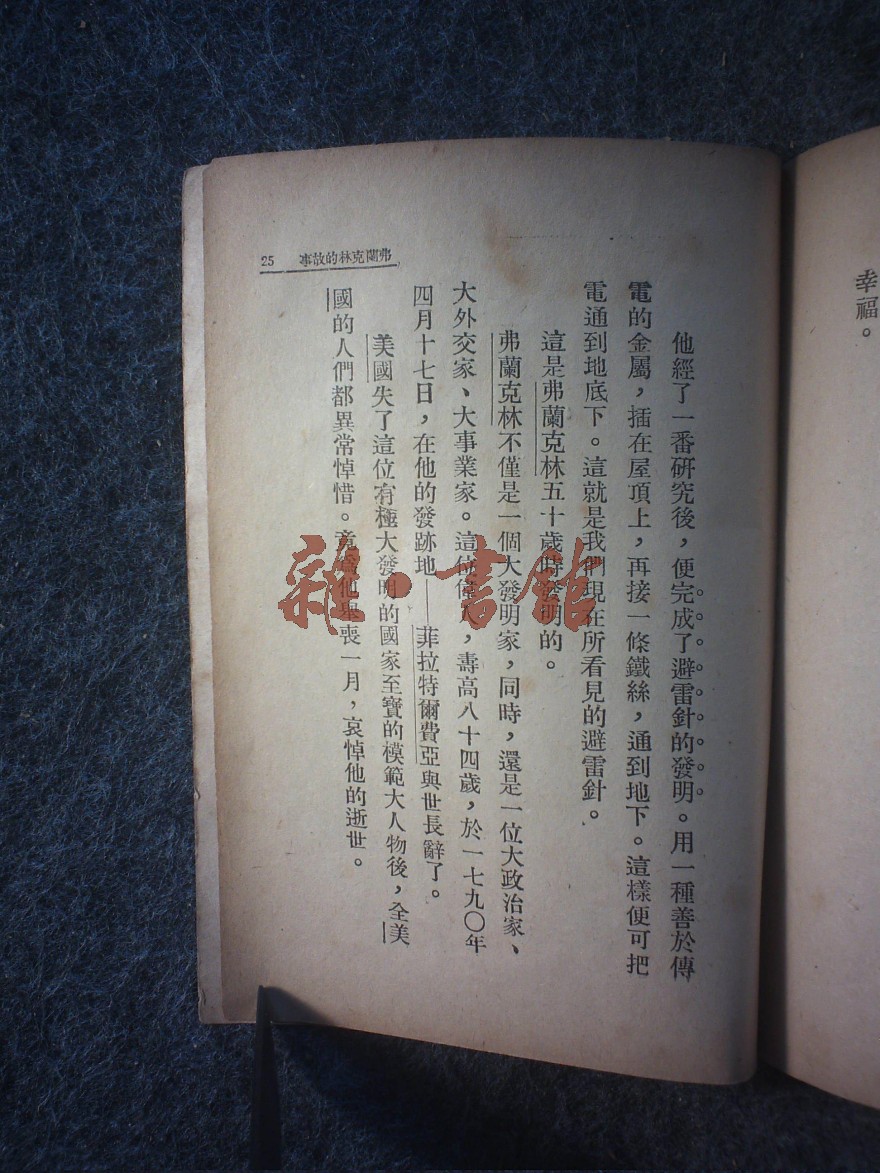 幸福。
弗蘭克林的故事 25
他經了一番研究後，便完成了避雷針的發明。用一種善於傳
電的金屬，插在屋頂上，再接一條鐵絲，通到地下。這樣便可把
電通到地底下。這就是我們現在所看見的避雷針。
這是弗蘭克林五十歲時發明的。
弗蘭克林不僅是一個大發明家，同時，還是一位大政治家、
大外交家、大事業家。這位偉人，壽高八十四歲，於一七九〇年
四月十七日，在他的發跡地——菲拉特爾費亞與世長辭了。
美國失了這位有極大發明的國家至寶的模範大人物後，全美
國的人們都異常悼惜。竟為他舉喪一月，哀悼他的逝世。
雜·書館